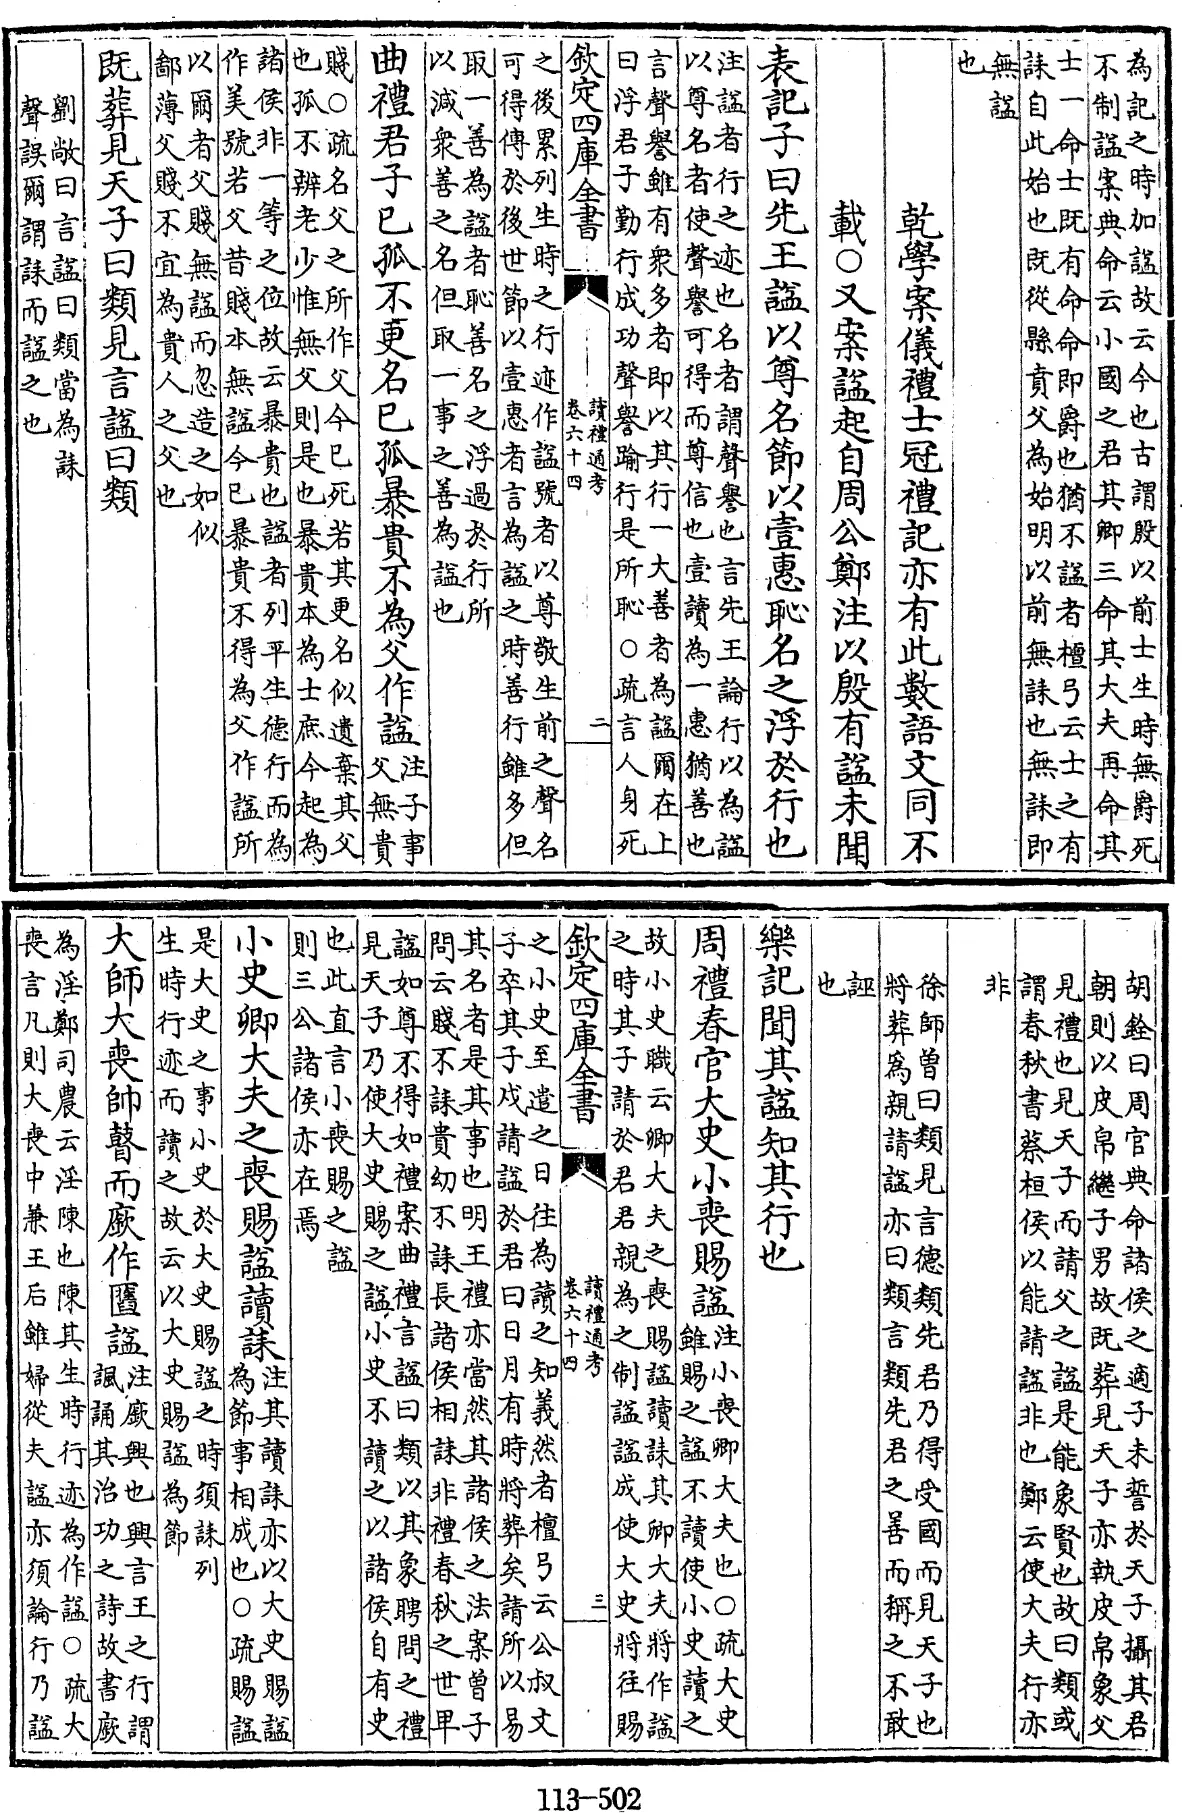 為記之時加謚故云今也古謂殷以前士生時無爵死
不制謚案典命云小國之君其卿三命其大夫再命其
士一命士既有命命即爵也猶不謚者檀弓云士之有
誄自此始也既從縣賁父為始明以前無誄也無誄即
無謚
也
乾學案儀禮士冠禮記亦有此數語文同不
載○又案謚起自周公鄭注以殷有謚未聞
表記子曰先王謚以尊名節以壹惠恥名之浮於行也
注謚者行之迹也名者謂聲譽也言先王論行以為謚
以尊名者使聲譽可得而尊信也壹讀為一惠猶善也
言聲譽雖有衆多者即以其行一大善者為謚爾在上
曰浮君子勤行成功聲譽踰行是所恥○疏言人身死
欽定四庫全書
讀禮通考
卷六十四
二
之後累列生時之行迹作謚號者以尊敬生前之聲名
可得傳於後世節以壹惠者言為謚之時善行雖多但
取一善為謚者恥善名之浮過於行所
以減衆善之名但取一事之善為謚也
曲禮君子已孤不更名已孤暴貴不為父作謚
注子事
父無貴
賤○疏名父之所作父今已死若其更名似遺棄其父
也孤不辨老少惟無父則是也暴貴本為士庶今起為
諸侯非一等之位故云暴貴也謚者列平生德行而為
作美號若父昔賤本無謚今已暴貴不得為父作謚所
以爾者父賤無謚而忽造之如似
鄙薄父賤不宜為貴人之父也
既葬見天子曰類見言謚曰類
劉敞曰言謚曰類當為誄
聲誤爾謂誄而謚之也
胡銓曰周官典命諸侯之適子未誓於天子攝其君
朝則以皮帛繼子男故既葬見天子亦執皮帛象父
見禮也見天子而請父之謚是能象賢也故曰類或
謂春秋書蔡桓侯以能請謚非也鄭云使大夫行亦
非
徐師曾曰類見言德類先君乃得受國而見天子也
將葬爲親請謚亦曰類言類先君之善而稱之不敢
誣
也
樂記聞其謚知其行也
周禮春官大史小喪賜謚
注小喪卿大夫也○疏大史
雖賜之謚不讀使小史讀之
故小史職云卿大夫之喪賜謚讀誄其卿大夫將作謚
之時其子請於君君親為之制謚謚成使大史將往賜
欽定四庫全書
讀禮通考
卷六十四
三
之小史至遣之日往為讀之知義然者檀弓云公叔文
子卒其子戍請謚於君曰日月有時將葬矣請所以易
其名者是其事也明王禮亦當然其諸侯之法案曾子
問云賤不誄貴幼不誄長諸侯相誄非禮春秋之世卑
謚如尊不得如禮案曲禮言謚曰類以其象聘問之禮
見天子乃使大史賜之謚小史不讀之以諸侯自有史
也此直言小喪賜之謚
則三公諸侯亦在焉
小史卿大夫之喪賜謚讀誄
注其讀誄亦以大史賜謚
為節事相成也○疏賜謚
是大史之事小史於大史賜謚之時須誄列
生時行迹而讀之故云以大史賜謚為節
大師大喪帥瞽而廞作匶謚
注廞興也興言王之行謂
諷誦其治功之詩故書廞
為淫鄭司農云淫陳也陳其生時行迹為作謚○疏大
喪言凡則大喪中兼王后雖婦從夫謚亦須論行乃謚
113-502